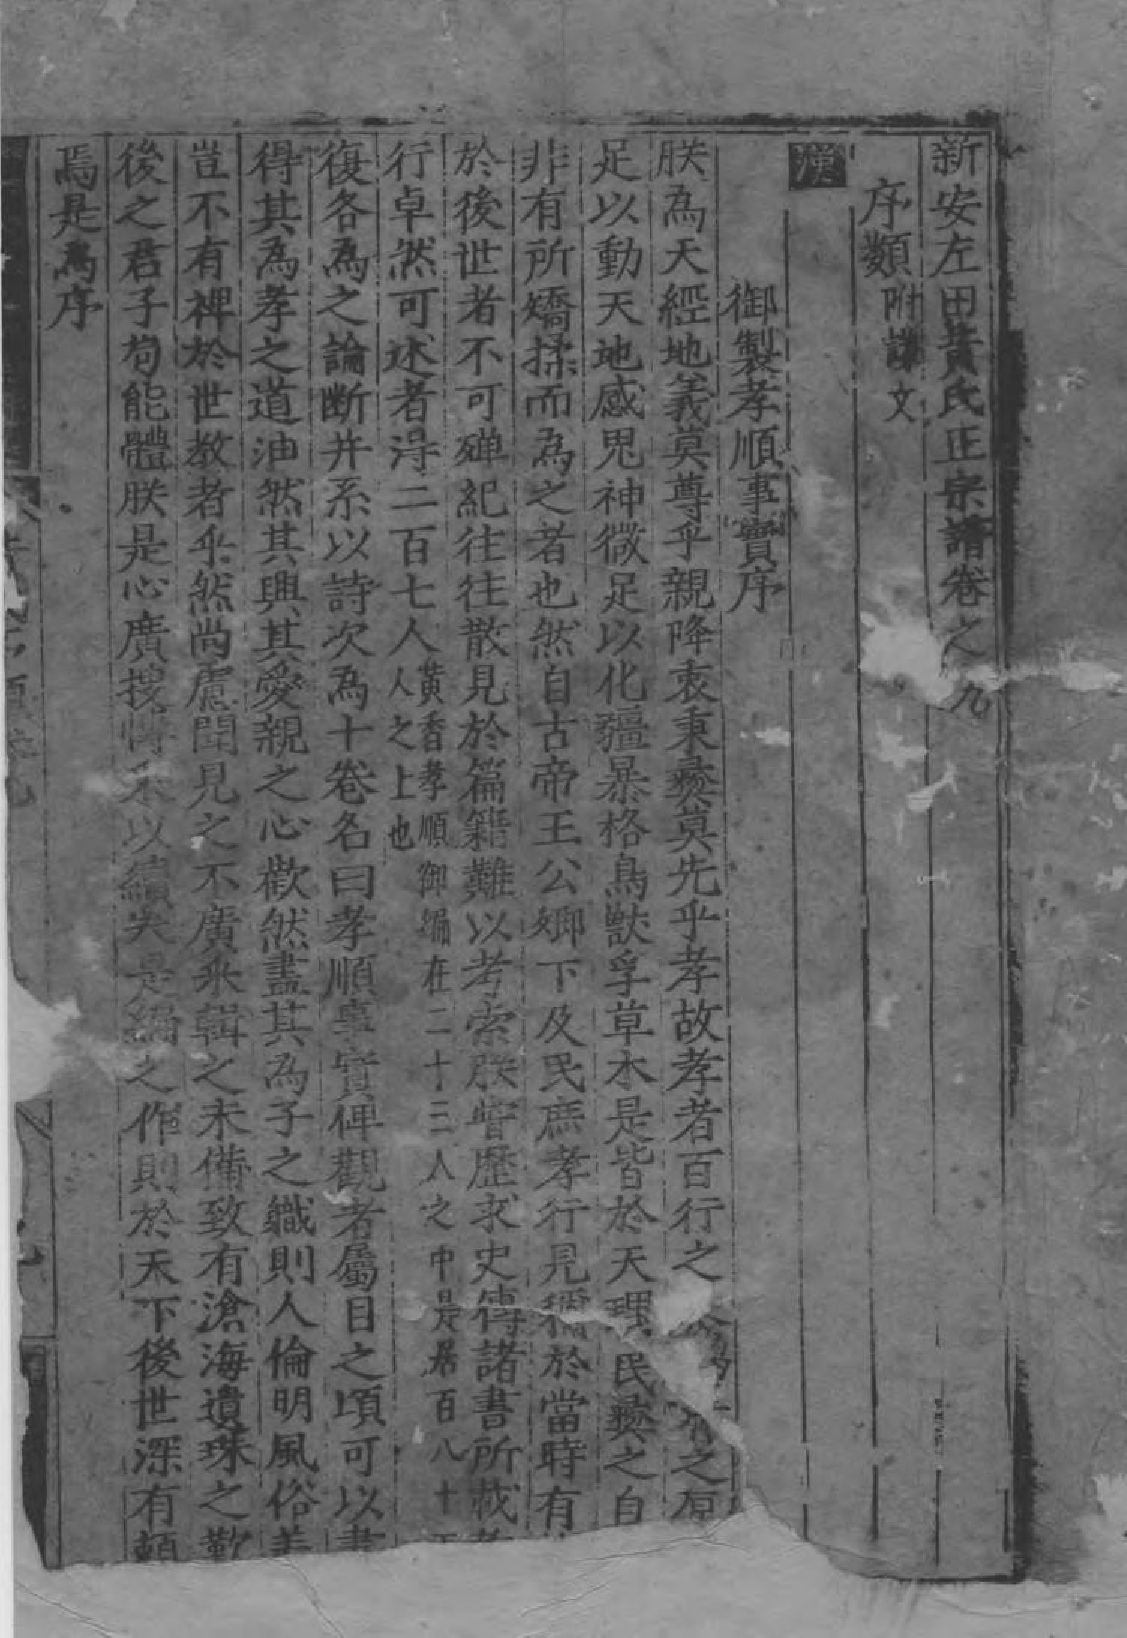 新安左田黃氏正宗譜卷之九
序類附譔文
漢
御製孝順事實序
朕為天經地義莫尊乎親降衷秉彝莫先乎孝故孝者百行之 之原
足以動天地感鬼神微足以化彊暴格鳥獸孚草木是皆於天理民彝之自
非有所矯揉而為之者也然自古帝王公卿下及民庶孝行見稱於當時有
於後世者不可殫紀往往散見於篇籍難以考索朕嘗歷求史傳諸書所載
行卓然可述者淂二百七人黃香孝順御編在二十二人之中是居百八十人之上也
復各為之論斷并系以詩次為十卷名曰孝順事實俾觀者屬目之頃可以
得其為孝之道油然其興其愛親之心歡然盡其為子之職則人倫明風俗美
豈不有裨於世教者乎然尚慮聞見之不廣采輯之未備致有滄海遺珠之歎
後之君子苟能體朕是心廣搜 以續 是編之作則於天下後世深有
焉是為序